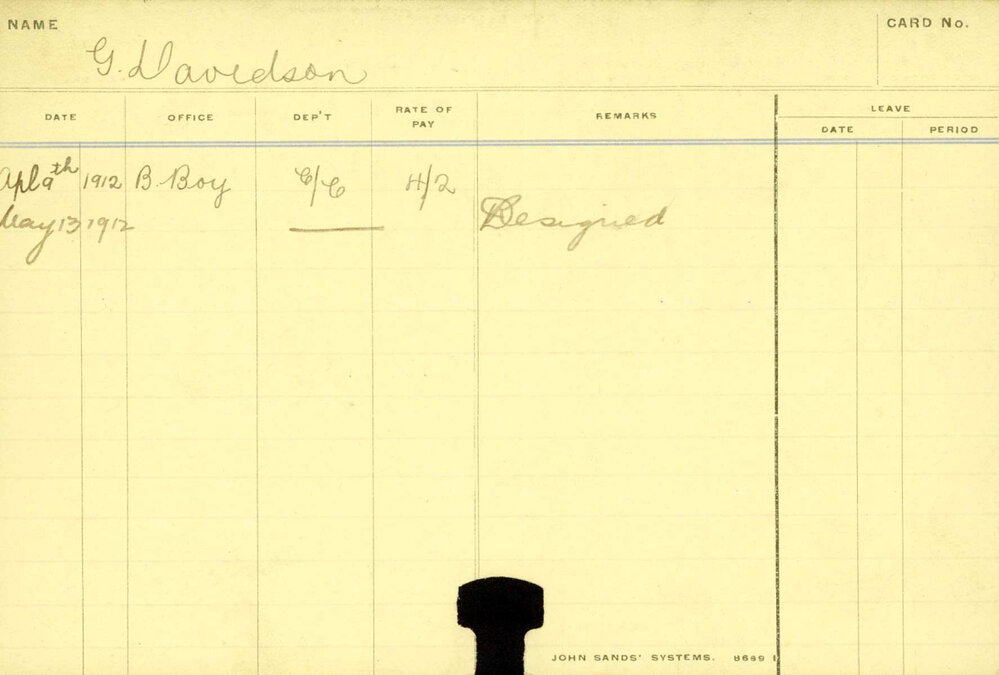 NAME G. Davidson CARD No.
DATE OFFICE DEP'T RATE OF PAY REMARKS LEAVE
DATE PERIOD
Apl 9th 1912 B. Boy C/C 4/2
May 13 1912 Resigned
JOHN SANDS' SYSTEMS. 8689